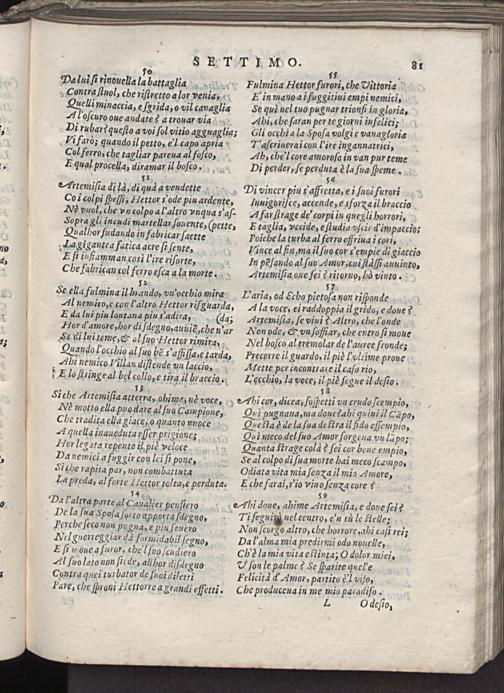 SETTIMO. 81
50
Da lui si rinouella la battaglia
Contra stuol, che ristretto a lor venia,
Quelli minaccia, e sgrida, o vil canaglia
A l'oscuro oue andate? a trouar via
Di rubar? questo a voi sol vitio agguaglia;
Vi farò; quando il petto, e'l capo apria
Col ferro, che tagliar pareua al fosco,
E qual procella, diramar il bosco.
51
Artemisia di là, di quà a vendette
Co i colpi spessi, Hettor s'ode piu ardente,
Nè vuol, che vn colpo a l'altro vnqua s'as-
Sopra gli incudi martellar souente, (pette,
Qualhor sudando in fabricar saette
La gigantea fatica acre si sente,
E si infiamman così l'ire risorte,
Che fabrican col ferro esca a la morte.
52
Se ella fulmina il brando, vn'occhio mira
Al nemico, e con l'altro Hettor risguarda,
E da lui piu lontana piu s'adira, (da;
Hor d'amore, hor di sdegno, auuiẽ, che n'ar
Se di lui teme, & al suo Hettor rimira,
Quando l'occhio al suo bẽ s'affissa, e tarda,
Ahi nemico Villan distende vn laccio,
E lo stringe al bel collo, e tira il braccio.
53
Si che Artemisia atterra, ohime, nè voce,
Nè motto ella puo dare al suo Campione,
Che tradita ella giace, o quanto nuoce
A quella inaueduta esser prigione;
Hor legata repente il piè veloce
Da nemici a fuggir con lei si pone,
Si che rapita par, non combattuta
La preda, al forte Hettor tolta, e perduta.
54
Da l'altra parte al Caualier pensiero
De la sua Sposa forto apporta sdegno,
Perche seco non pugna, e piu seuero
Nel guerreggiar dà formidabil segno,
E si moue a furor, che'l suo scudiero
Al suo lato non siede, allhor disdegno
Contra quei turbator de suoi diletti
Pare, che sproni Hettorre a grandi effetti.
55
Fulmina Hettor furori, che Vittoria
E' in mano a i fuggitiui empi nemici,
Se quì nel tuo pugnar trionfi in gloria,
Ahi, che saran per te giorni infelici;
Gli occhi a la Sposa volgi e vanagloria
T'ascriuerai con l'ire ingannatrici,
Ah, che'l core amoroso in van pur teme
Di perder, se perduta è la sua speme.
56
Di vincer piu s'affretta, e i suoi furori
Inuigorisce, accende, e sforza il braccio
A far strage de' corpi in quegli horrori,
E taglia, vccide, e studia vscir d'impaccio;
Poiche la turba al ferro offriua i cori,
Vince al fin, ma il suo cor s'empie di giaccio
In pẽsando al suo Amor, cui stassi auuinto,
Artemisia oue sei? ritorno, hò vinto.
57
L'aria, od Echo pietosa non risponde
A la voce, ei raddoppia il grido, e doue?
Artemisia, se viui? Altro, che l'onde
Non ode, & vn soffiar, che entro si moue
Nel bosco al tremolar de l'auree fronde;
Precorre il guardo, il piè l'vltime proue
Mette per incontrare il caso rio,
L'occhio, la voce, il piè segue il desio.
58
Ahi cor, dicea, sospetti vn crudo scempio,
Quì pugnana, ma doue? ahi quiui il Capo,
Questa è de la sua destra il fido essempio,
Quì meco del suo Amor sorgena vn lapo;
Quanta strage colà? sei cor bene empio,
Se al colpo di sua morte hai meco scampo,
Odiata vita mia senza il mio Amore,
E che farai, s'io viuo senza core?
59
Ahi doue, ahime Artemisia, e doue sei?
Ti seguii nel centro, e'n sù le stelle;
Non scorgo altro, che horrore, ahi casi rei;
Da l'alma mia predirmi odo nouelle,
Ch'è la mia vita estinta; O dolor miei,
V son le palme? Se sparire quel'e
Felicità d'Amor, partito è'l viso,
Che produceua in me mio paradiso.
L O desio,